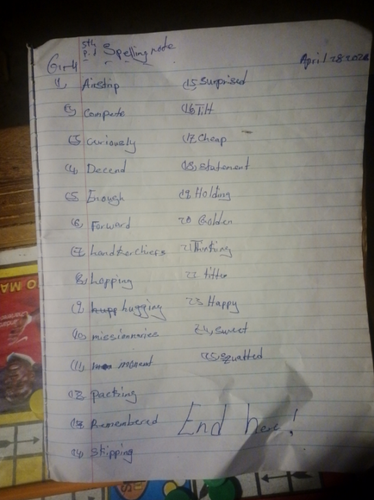 5th P. Spelling note
April 28 2020
1, Airstrip
2, Compete
3, curiously
4, Decend
5, Enough
6, Forward
7, handkerchiers
8, hopping
9, hugging
10, missionaries
11, moment
12, packing
13, Remembered
14, Skipping
15 Surprised
16 Tilt
17, Cheap
18, statement
19, Holding
20 Golden
21 Thinking
22, titter
23, Happy
24, sweet
25, squatted
End here!